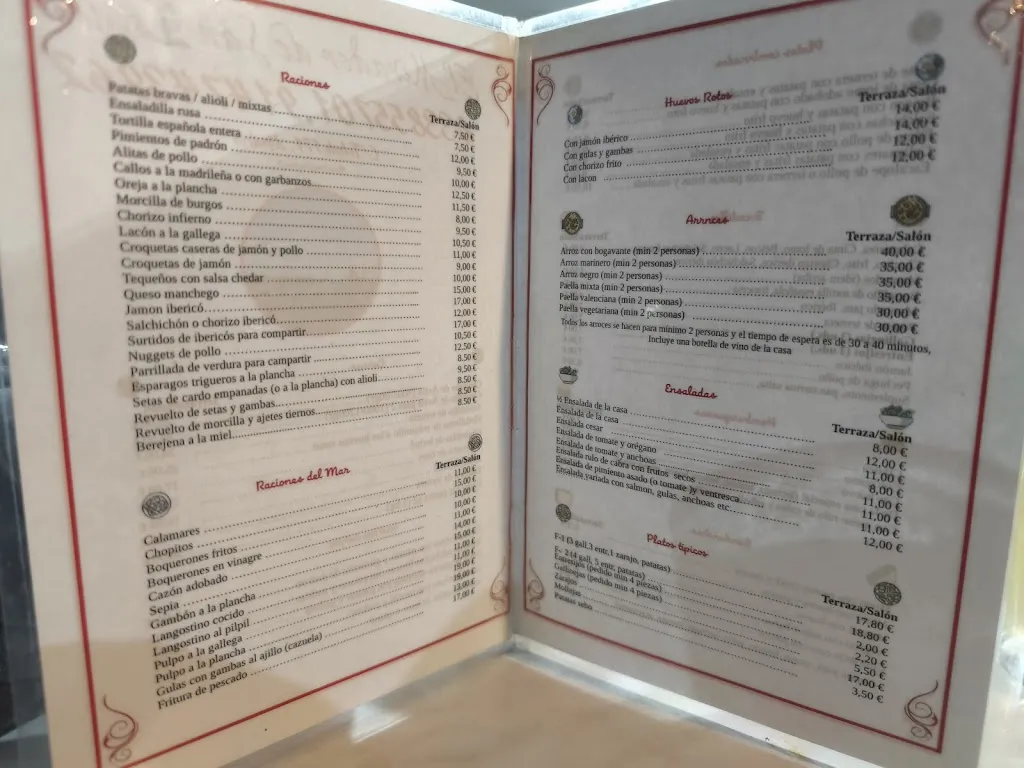 Raciones
Terraza/Salón
Patatas bravas / alioli / mixtas 7,50 €
Ensaladilla rusa 7,50 €
Tortilla española entera 12,00 €
Pimientos de padrón 9,50 €
Alitas de pollo 10,00 €
Callos a la madrileña o con garbanzos 12,50 €
Oreja a la plancha 11,50 €
Morcilla de burgos 8,00 €
Chorizo infierno 9,50 €
Lacón a la gallega 10,50 €
Croquetas caseras de jamón y pollo 11,00 €
Croquetas de jamón 9,00 €
Tequeños con salsa chedar 10,00 €
Queso manchego 15,00 €
Jamon ibericó 17,00 €
Salchichón o chorizo ibericó 12,00 €
Surtidos de ibericós para compartir 17,00 €
Nuggets de pollo 10,50 €
Parrillada de verdura para campartir 12,50 €
Esparagos trigueros a la plancha 8.50 €
Setas de cardo empanadas (o a la plancha) con alioli 9,50 €
Revuelto de setas y gambas 8.50 €
Revuelto de morcilla y ajetes tiernos 8.50 €
Berejena a la miel 8.50 €
Raciones del Mar
Terraza/Salón
Calamares 11,00 €
Chopitos 15,00 €
Boquerones fritos 10,00 €
Boquerones en vinagre 10,00 €
Cazón adobado 11,00 €
Sepia 14,00 €
Gambón a la plancha 15,00 €
Langostino cocido 11,00 €
Langostino al pilpil 11,00 €
Pulpo a la gallega 19,00 €
Pulpo a la plancha 19,00 €
Gulas con gambas al ajillo (cazuela) 13,00 €
Fritura de pescado 17,00 €
Huevos Rotos
Terraza/Salón
Con jamón ibérico 14,00 €
Con gulas y gambas 14,00 €
Con chorizo frito 12,00 €
Con lacon 12,00 €
Arroces
Terraza/Salón
Arroz con bogavante (min 2 personas) 40,00 €
Arroz marinero (min 2 personas) 35,00 €
Arroz negro (min 2 personas) 35,00 €
Paella mixta (min 2 personas) 35,00 €
Paella valenciana (min 2 personas) 30,00 €
Paella vegetariana (min 2 personas) 30,00 €
Todos los arroces se hacen para mínimo 2 personas y el tiempo de espera és de 30 a 40 minutos,
Incluye una botella de vino de la casa
Ensaladas
Terraza/Salón
½ Ensalada de la casa 8,00 €
Ensalada de la casa 12,00 €
Ensalada cesar 11,00 €
Ensalada de tomate y orégano 8,00 €
Ensalada de tomate y anchoas 11,00 €
Ensalada rulo de cabra con frutos secos 11,00 €
Ensalada de pimiento asado (o tomate )y ventresca 11,00 €
Ensalada variada con salmon, gulas, anchoas etc 12,00 €
Platos tipicos
Terraza/Salón
F-1 (3 gall,3 entr,1 zarajo, patatas) 17.80 €
F- 2 (4 gall, 5 entr, patatas) 18,80 €
Entresijos (pedido min 4 piezas) 2,00 €
Gallinejas (pedido min 4 piezas) 2,20 €
Zarajos 5,50 €
Mollejas 17,00 €
Patatas sebo 3,50 €